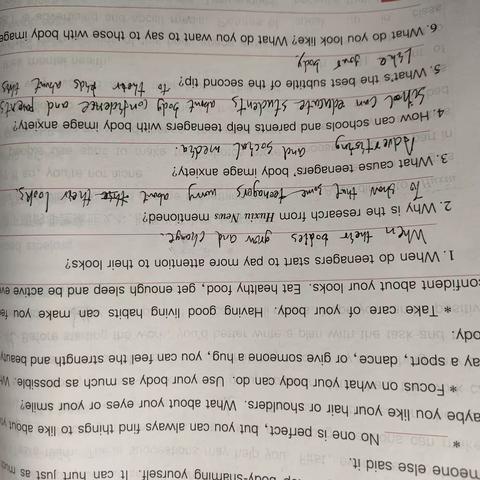 meone else said it. op body-shaming yourself. It can hurt just as muc
* No one is perfect, but you can always find things to like about yo
aybe you like your hair or shoulders. What about your eyes or your smile?
* Focus on what your body can do. Use your body as much as possible. Wh
ay a sport, dance, or give someone a hug, you can feel the strength and beauty
ody.
* Take care of your body. Having good living habits can make you fe
confident about your looks. Eat healthy food, get enough sleep and be active eve
1. When do teenagers start to pay more attention to their looks?
When their bodies grow and change.
2. Why is the research from Huxiu News mentioned?
To show that some teenagers worry about their looks.
3. What cause teenagers' body image anxiety?
Advertising and social media.
4. How can schools and parents help teenagers with body image anxiety?
School can educate students about body confidence and parents
to their kids about this
5. What's the best subtitle of the second tip?
Like your body.
6. What do you look like? What do you want to say to those with body image